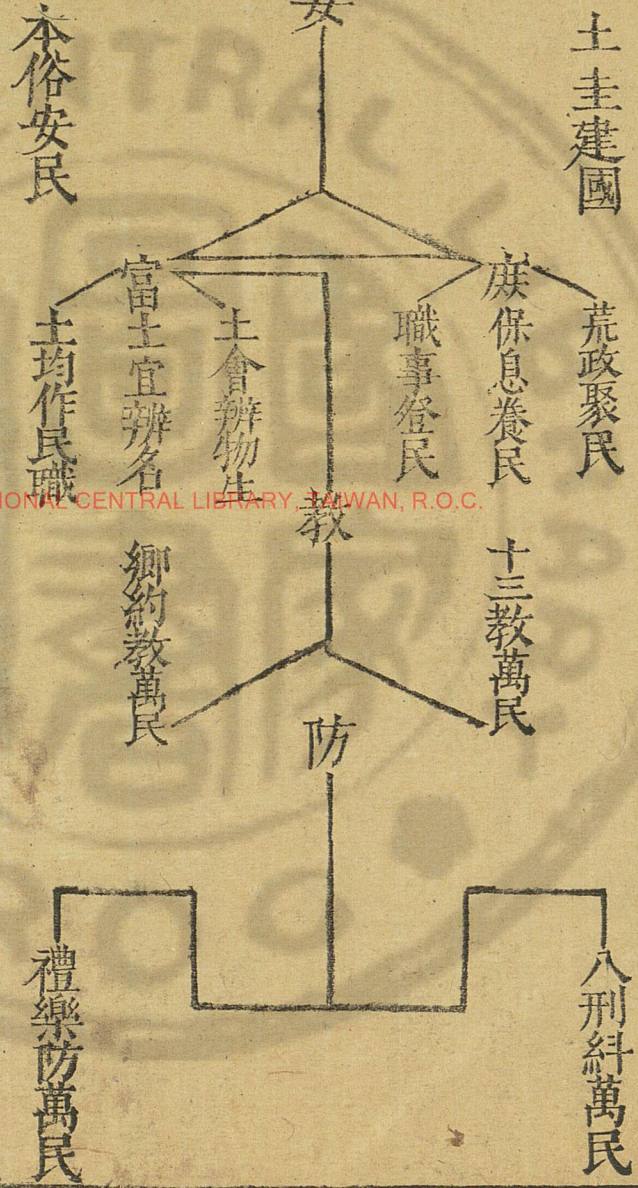 土圭建國
安
本俗安民
荒政聚民
庶保息養民
職事登民
土會辨物生
富土宜辨名
土均作民職
教
十三教萬民
鄉約教萬民
防
八刑紏萬民
禮樂防萬民
IONAL CENTRAL LIBRARY, TAIWAN, R.O.C.